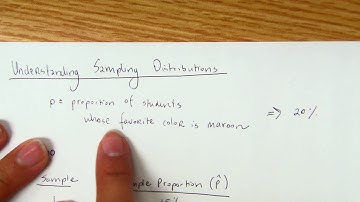 Understanding Sampling Distributions
p = proportion of students
whose favorite color is maroon => 20%
Sample Proportion (p̂)